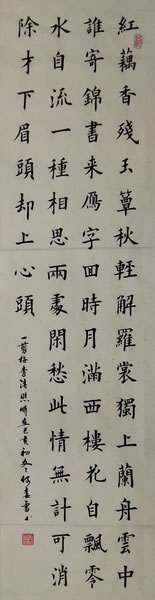 紅藕香殘玉簟秋輕解羅裳獨上蘭舟雲中
誰寄錦書来雁字回時月滿西樓花自飄零
水自流一種相思兩處閑愁此情無計可消
除才下眉頭却上心頭
一剪梅李清照時在己亥初冬